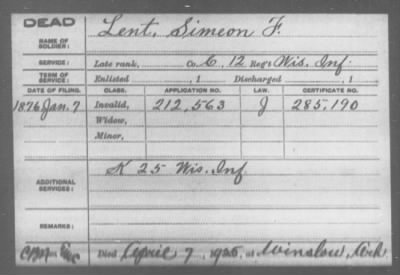 DEAD
NAME OF SOLDIER: Lent, Simeon F.
SERVICE: Late rank, Co. C, 12 Reg't Wis. Inf.
TERM OF SERVICE: Enlisted , 1 Discharged , 1
DATE OF FILING. CLASS. APPLICATION NO. LAW. CERTIFICATE NO.
1876 Jan. 7 Invalid, 212,563 J 285,190
Widow,
Minor,
ADDITIONAL SERVICES: K 25 Wis. Inf.
REMARKS:
Died April 7, 1925, at Winslow, Ark